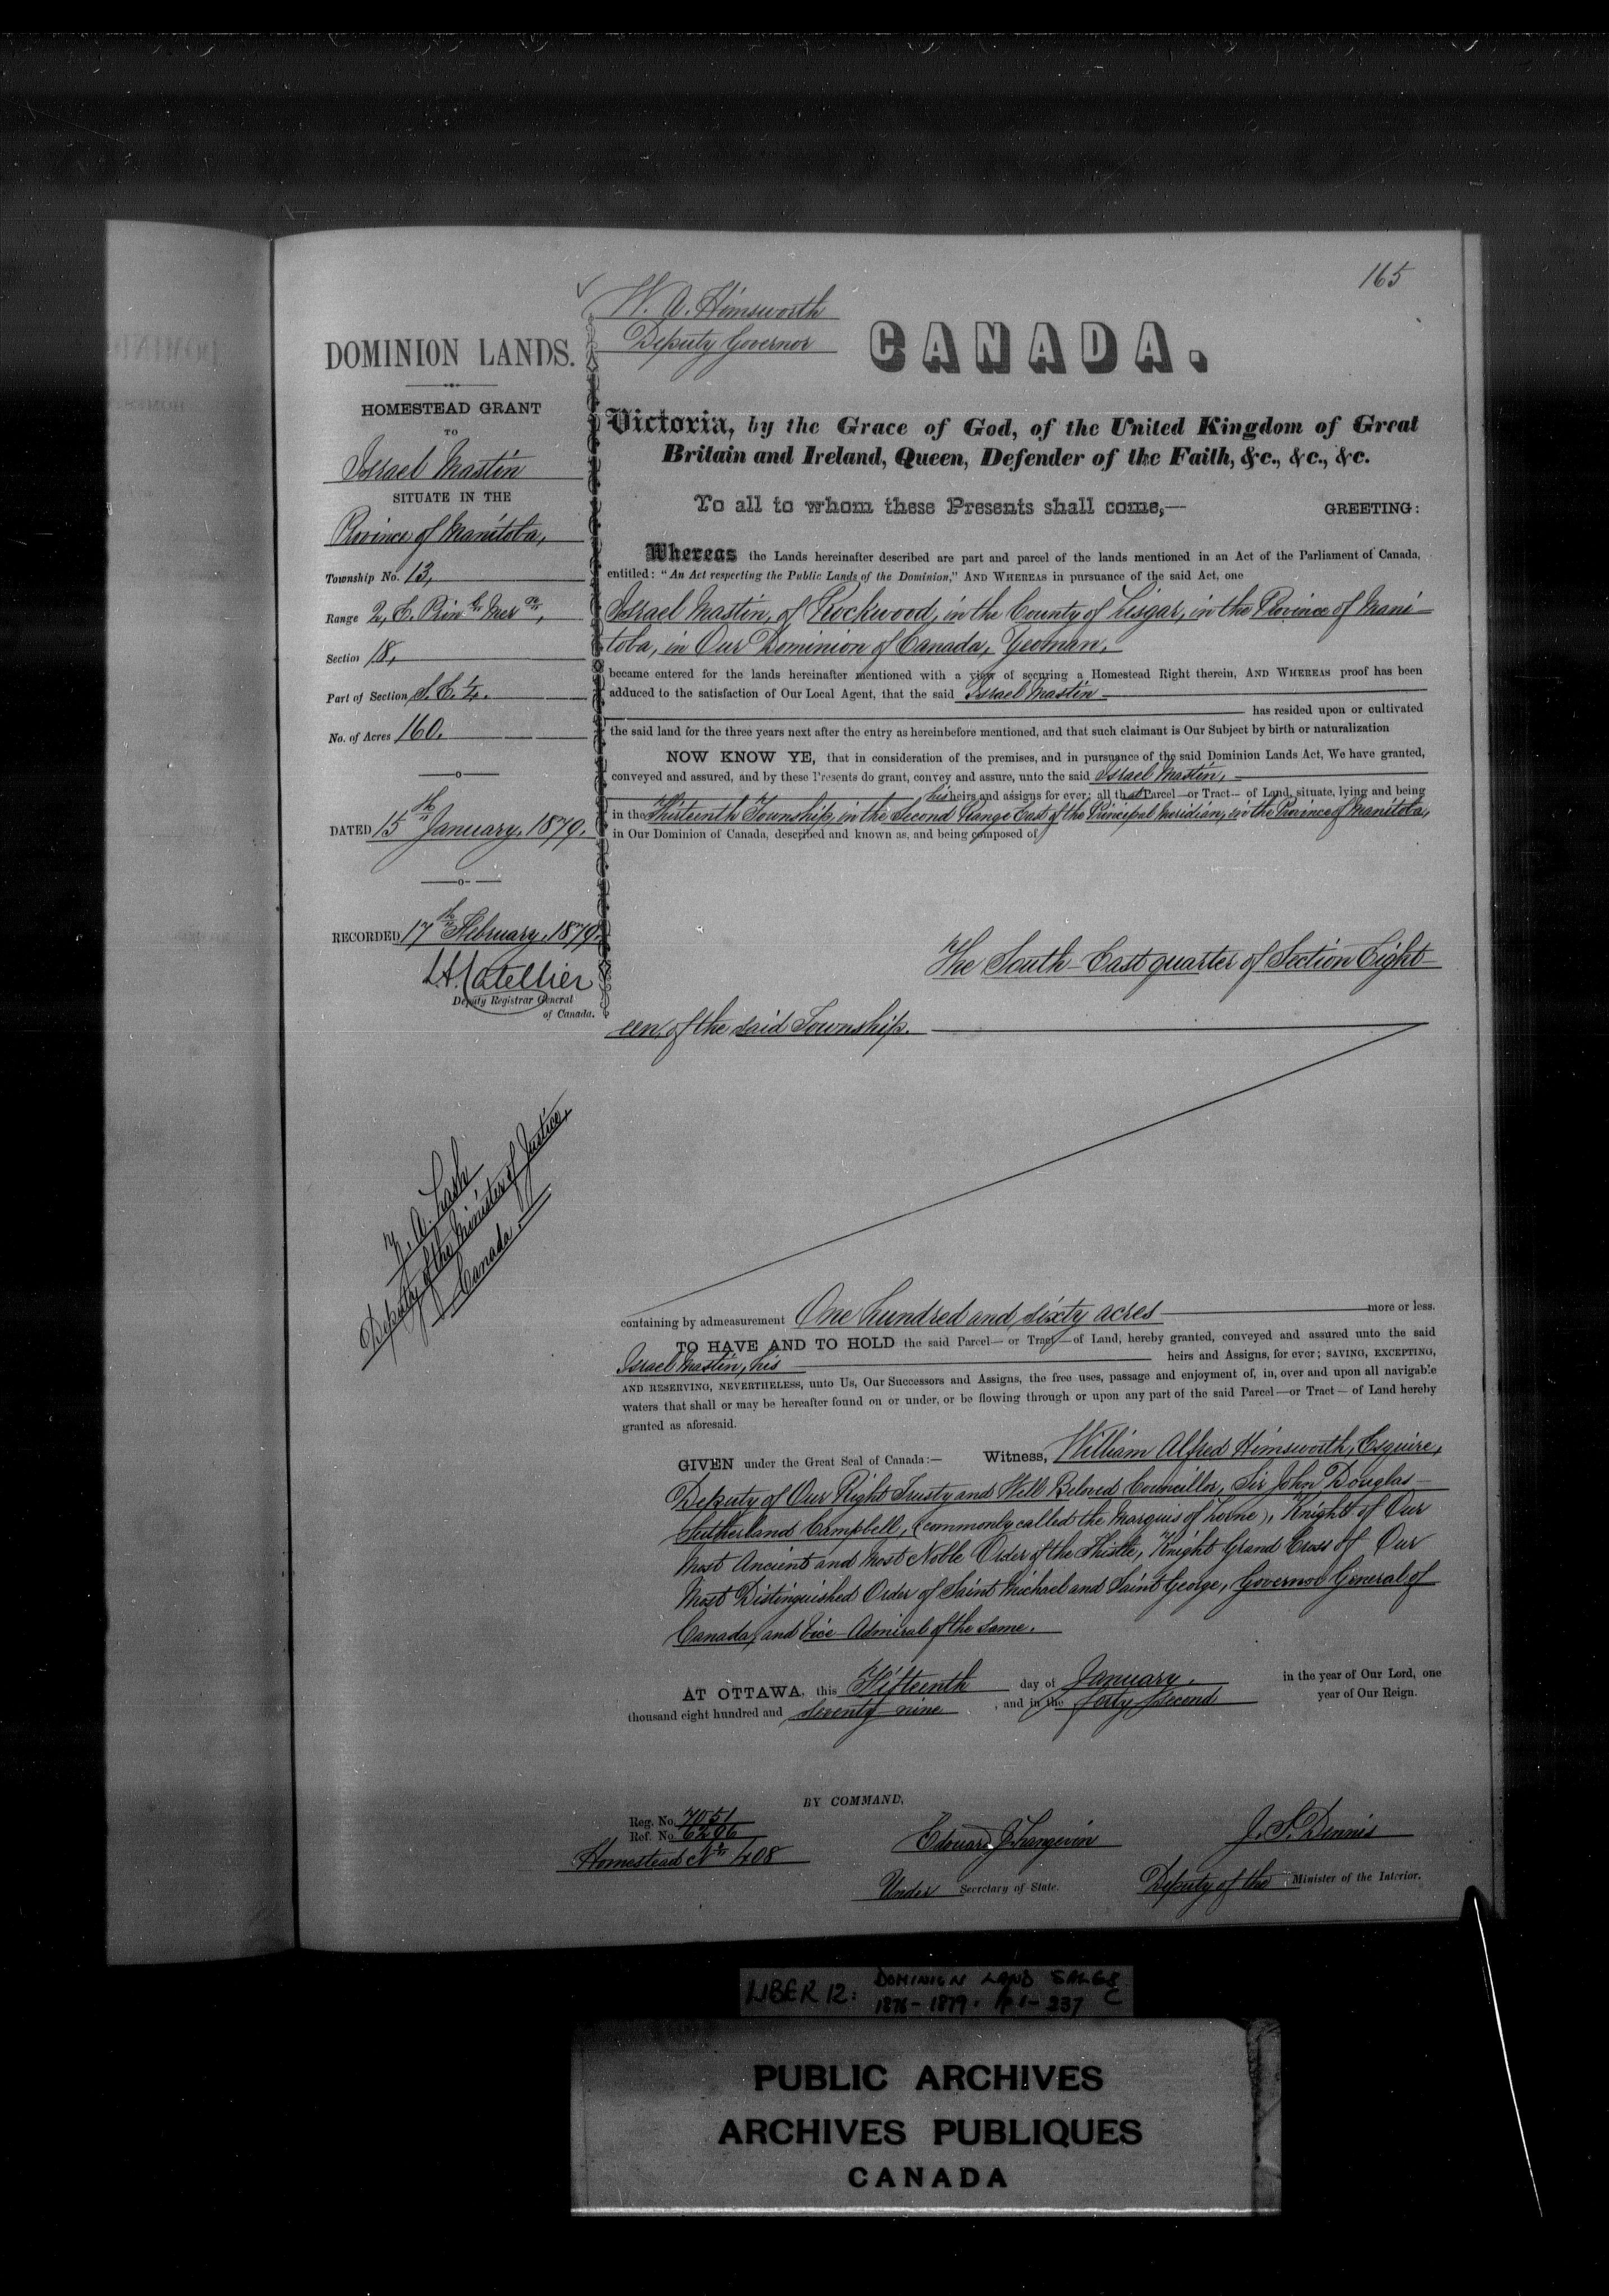 165
W. A. Himsworth
Deputy Governor
CANADA.
DOMINION LANDS.
HOMESTEAD GRANT
TO
Israel Mastin
SITUATE IN THE
Province of Manitoba,
Township No. 13,
Range 2, E. Prin^l Mer^n,
Section 18,
Part of Section S. E. 1/4.
No. of Acres 160.
DATED 15th January, 1879.
RECORDED 17th February, 1879.
L. A. Catellier
Deputy Registrar General
of Canada.
Z. A. Lash
Deputy of the Minister of Justice,
Canada.
Victoria, by the Grace of God, of the United Kingdom of Great
Britain and Ireland, Queen, Defender of the Faith, &c., &c., &c.
To all to whom these Presents shall come,— GREETING:
Whereas the Lands hereinafter described are part and parcel of the lands mentioned in an Act of the Parliament of Canada,
entitled: "An Act respecting the Public Lands of the Dominion," AND WHEREAS in pursuance of the said Act, one
Israel Mastin, of Rockwood, in the County of Lisgar, in the Province of Mani-
toba, in Our Dominion of Canada, Yeoman,
became entered for the lands hereinafter mentioned with a view of securing a Homestead Right therein, AND WHEREAS proof has been
adduced to the satisfaction of Our Local Agent, that the said Israel Mastin
has resided upon or cultivated
the said land for the three years next after the entry as hereinbefore mentioned, and that such claimant is Our Subject by birth or naturalization
NOW KNOW YE, that in consideration of the premises, and in pursuance of the said Dominion Lands Act, We have granted,
conveyed and assured, and by these Presents do grant, convey and assure, unto the said Israel Mastin,
his heirs and assigns for ever; all that Parcel—or Tract—of Land, situate, lying and being
in the Thirteenth Township, in the Second Range East of the Principal Meridian, in the Province of Manitoba,
in Our Dominion of Canada, described and known as, and being composed of
The South-East quarter of Section Eight-
een, of the said Township.
containing by admeasurement One hundred and sixty acres more or less.
TO HAVE AND TO HOLD the said Parcel—or Tract—of Land, hereby granted, conveyed and assured unto the said
Israel Mastin, his heirs and Assigns, for ever; SAVING, EXCEPTING,
AND RESERVING, NEVERTHELESS, unto Us, Our Successors and Assigns, the free uses, passage and enjoyment of, in, over and upon all navigable
waters that shall or may be hereafter found on or under, or be flowing through or upon any part of the said Parcel—or Tract—of Land hereby
granted as aforesaid.
GIVEN under the Great Seal of Canada:— Witness, William Alfred Himsworth, Esquire,
Deputy of Our Right Trusty and Well Beloved Councillor, Sir John Douglas-
Sutherland Campbell, (commonly called the Marquis of Lorne), Knight of Our
Most Ancient and Most Noble Order of the Thistle, Knight Grand Cross of Our
Most Distinguished Order of Saint Michael and Saint George, Governor General of
Canada, and Vice-Admiral of the same.
AT OTTAWA, this Fifteenth day of January, in the year of Our Lord, one
thousand eight hundred and seventy nine, and in the forty second year of Our Reign.
BY COMMAND,
Reg. No. 7051
Ref. No. 6296
Homestead No. 408
Edouard J. Langevin
Under Secretary of State.
J. S. Dennis
Deputy of the Minister of the Interior.
LIBER 12: DOMINION LAND SALES
1876-1879. pp 1-237 C
PUBLIC ARCHIVES
ARCHIVES PUBLIQUES
CANADA